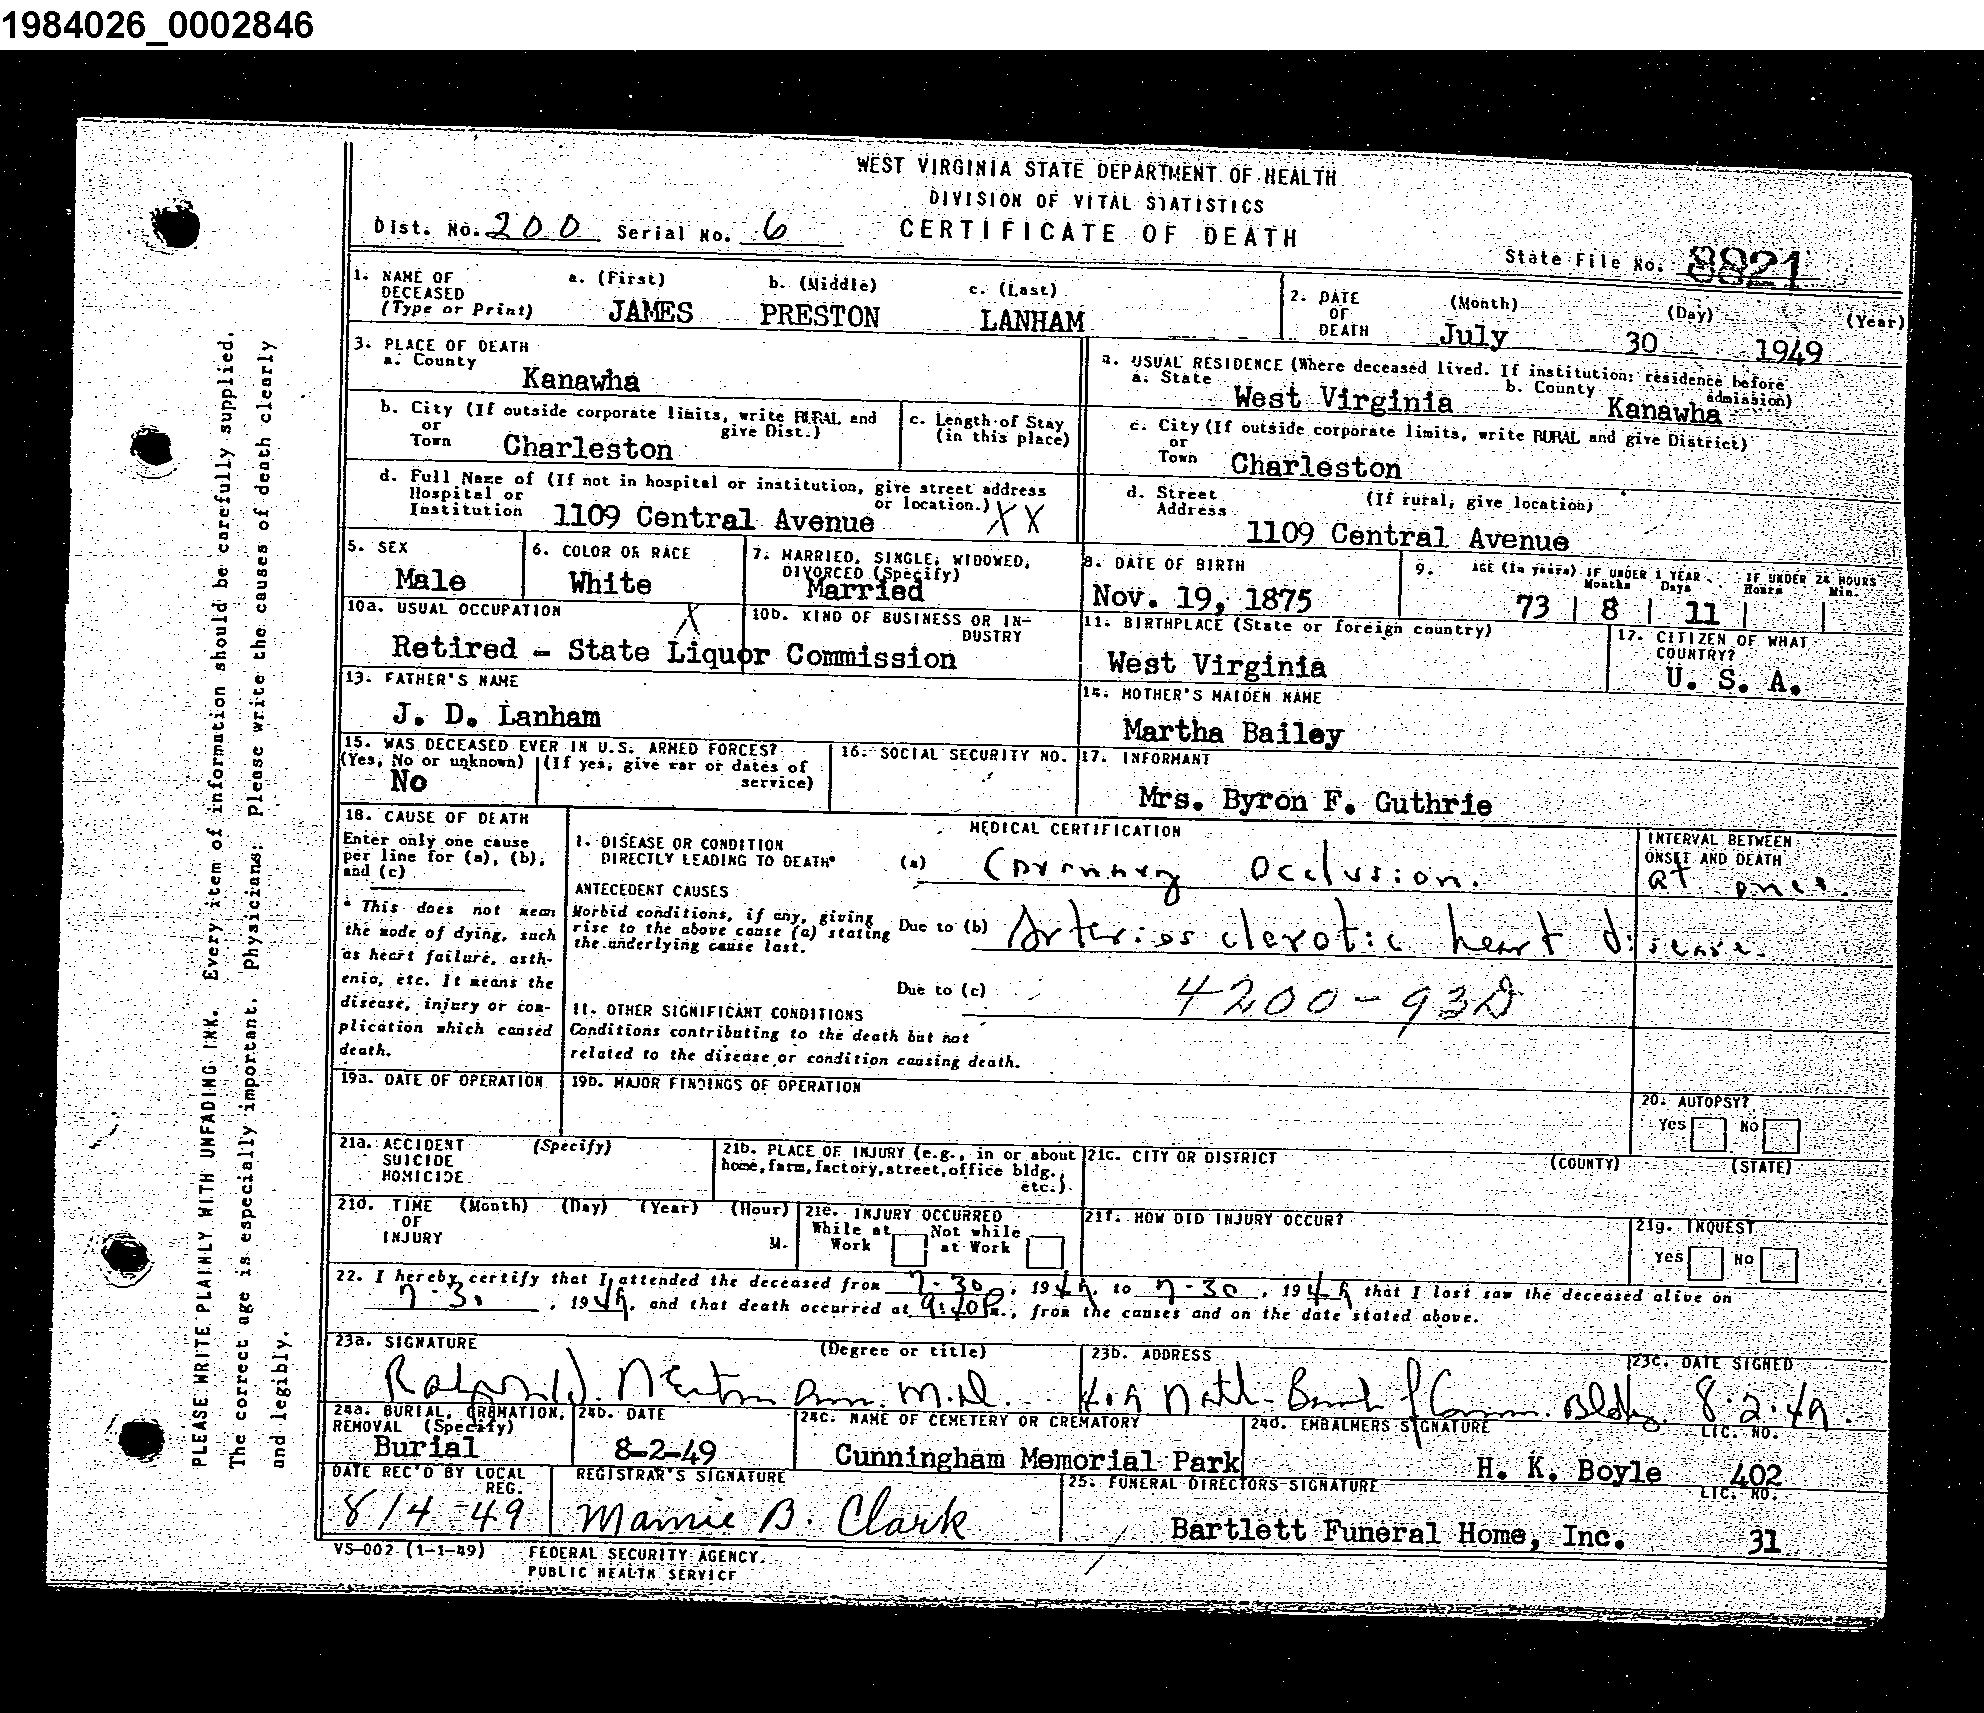 1984026_0002846
WEST VIRGINIA STATE DEPARTMENT OF HEALTH
DIVISION OF VITAL STATISTICS
CERTIFICATE OF DEATH
Dist. No. 200 Serial No. 6
State File No. 8821
1. NAME OF DECEASED (Type or Print)
a. (First) JAMES
b. (Middle) PRESTON
c. (Last) LANHAM
2. DATE OF DEATH (Month) (Day) (Year)
July 30 1949
3. PLACE OF DEATH
a. County
Kanawha
b. City (If outside corporate limits, write RURAL and give Dist.)
or Town Charleston
c. Length of Stay (in this place)
d. Full Name of (If not in hospital or institution, give street address or location.)
Hospital or Institution 1109 Central Avenue XX
4. USUAL RESIDENCE (Where deceased lived. If institution: residence before admission)
a. State West Virginia b. County Kanawha
c. City (If outside corporate limits, write RURAL and give District)
or Town Charleston
d. Street Address (If rural, give location)
1109 Central Avenue
5. SEX
Male
6. COLOR OR RACE
White
7. MARRIED, SINGLE, WIDOWED, DIVORCED (Specify)
Married
8. DATE OF BIRTH
Nov. 19, 1875
9. AGE (In years) IF UNDER 1 YEAR Months Days IF UNDER 24 HOURS Hours Min.
73 | 8 | 11
10a. USUAL OCCUPATION X
10b. KIND OF BUSINESS OR INDUSTRY
Retired - State Liquor Commission
11. BIRTHPLACE (State or foreign country)
West Virginia
12. CITIZEN OF WHAT COUNTRY?
U. S. A.
13. FATHER'S NAME
J. D. Lanham
14. MOTHER'S MAIDEN NAME
Martha Bailey
15. WAS DECEASED EVER IN U.S. ARMED FORCES?
(Yes, No or unknown) (If yes, give war or dates of service)
No
16. SOCIAL SECURITY NO.
17. INFORMANT
Mrs. Byron F. Guthrie
18. CAUSE OF DEATH
Enter only one cause per line for (a), (b), and (c)
* This does not mean the mode of dying, such as heart failure, asthenia, etc. It means the disease, injury or complication which caused death.
MEDICAL CERTIFICATION
INTERVAL BETWEEN ONSET AND DEATH
I. DISEASE OR CONDITION DIRECTLY LEADING TO DEATH*
(a) Coronary Occlusion. at once.
ANTECEDENT CAUSES
Morbid conditions, if any, giving rise to the above cause (a) stating the underlying cause last.
Due to (b) Arteriosclerotic heart disease.
Due to (c) 4200-93D
II. OTHER SIGNIFICANT CONDITIONS
Conditions contributing to the death but not related to the disease or condition causing death.
19a. DATE OF OPERATION
19b. MAJOR FINDINGS OF OPERATION
20. AUTOPSY?
Yes No
21a. ACCIDENT SUICIDE HOMICIDE (Specify)
21b. PLACE OF INJURY (e.g., in or about home, farm, factory, street, office bldg., etc.)
21c. CITY OR DISTRICT (COUNTY) (STATE)
21d. TIME OF INJURY (Month) (Day) (Year) (Hour) M.
21e. INJURY OCCURRED
While at Work Not while at Work
21f. HOW DID INJURY OCCUR?
21g. INQUEST
Yes No
22. I hereby certify that I attended the deceased from 7-30, 1949, to 7-30, 1949 that I last saw the deceased alive on
7-30, 1949, and that death occurred at m., from the causes and on the date stated above.
23a. SIGNATURE (Degree or title)
M.D.
23b. ADDRESS
Natl. Bank of Comm. Bldg.
23c. DATE SIGNED
8-2-49.
24a. BURIAL, CREMATION, REMOVAL (Specify)
Burial
24b. DATE
8-2-49
24c. NAME OF CEMETERY OR CREMATORY
Cunningham Memorial Park
24d. EMBALMERS SIGNATURE LIC. NO.
H. K. Boyle 402
DATE REC'D BY LOCAL REG.
8/4-49
REGISTRAR'S SIGNATURE
Mamie B. Clark
25. FUNERAL DIRECTORS SIGNATURE LIC. NO.
Bartlett Funeral Home, Inc. 31
VS-002 (1-1-49) FEDERAL SECURITY AGENCY
PUBLIC HEALTH SERVICE
PLEASE WRITE PLAINLY WITH UNFADING INK. Every item of information should be carefully supplied.
The correct age is especially important. Physicians: Please write the causes of death clearly
and legibly.